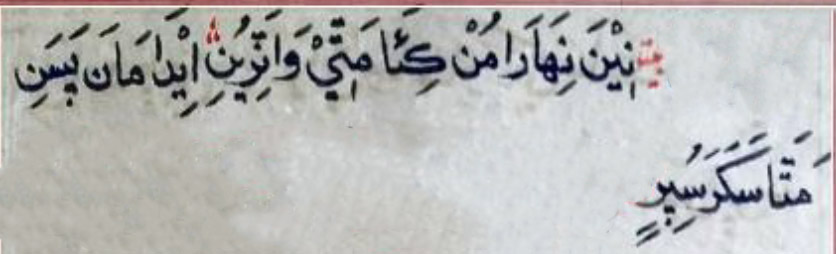 نِيْنَ نِهَارَا مُنْ كِئَا مَتِّيْ وَانِرِّيُنِ اِيْدَا مَانَ پَسَنِ
مَتَّا سَكَرَسُپِرِ